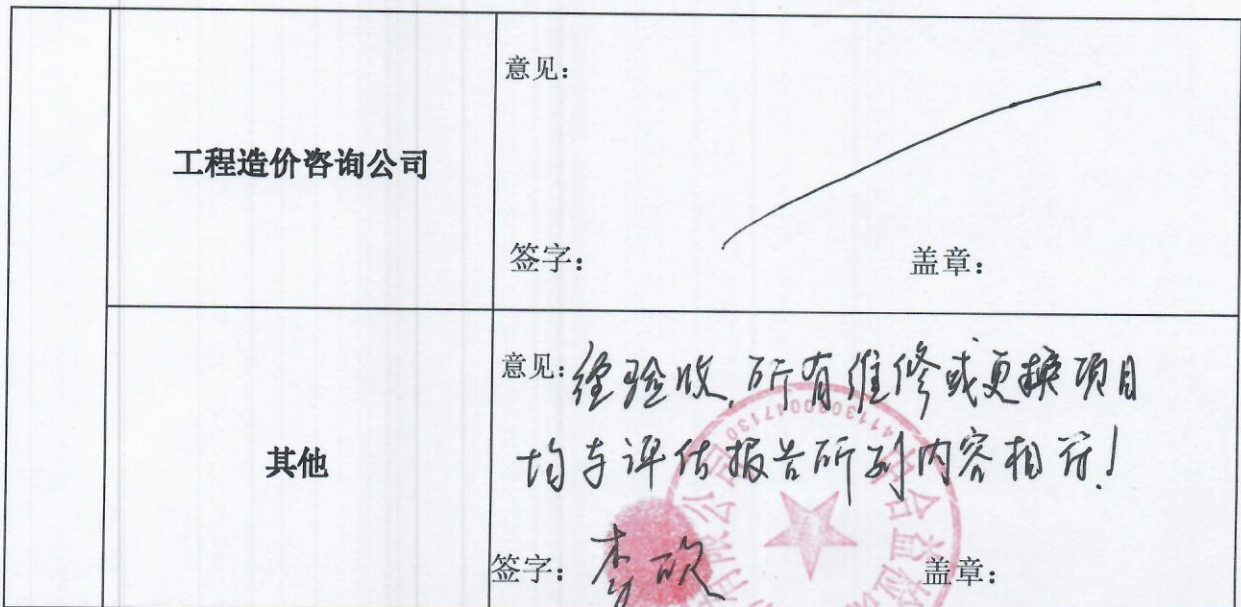 意见：
工程造价咨询公司
签字：
盖章：
意见：经验收，所有维修或更换项目
均与评估报告所列内容相符！
其他
签字：李欣
盖章：